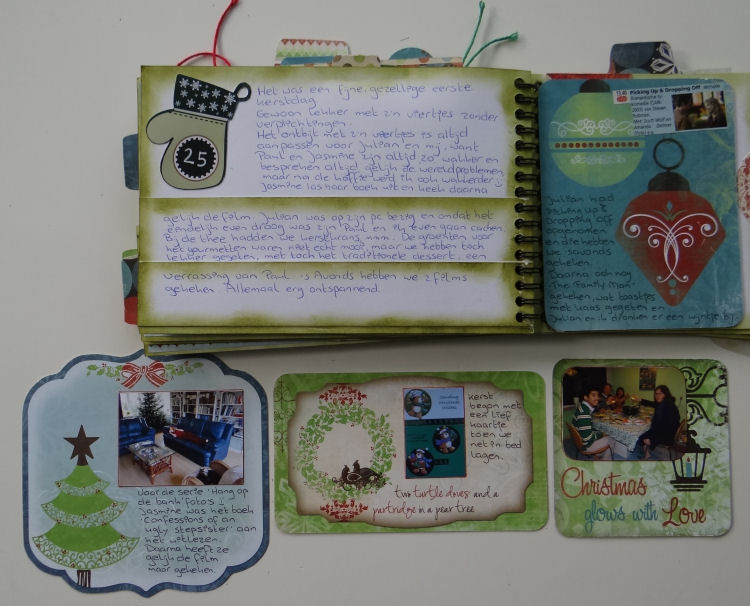 25
Het was een fijne, gezellige eerste
kerstdag
Gewoon lekker met z'n viertjes zonder
verplichtingen.
Het ontbijt met z'n viertjes is altijd
aanpassen voor Julian en mij, want
Paul en Jasmine zijn altijd zo wakker en
bespreken altijd gelijk de wereldproblemen
maar na de koffie werd ik ook wakkerder :)
Jasmine las haar boek uit en keek daarna
gelijk de film. Julian was op zijn pc bezig en omdat het
eindelijk even droog was zijn Paul en ik even gaan cachen.
Bij de thee hadden we kerstkrans, mmm. De groenten voor
het gourmetten waren niet echt mooi, maar we hebben toch
lekker gegeten, met toch het traditionele dessert, een
verrassing van Paul. 's Avonds hebben we 2 films
gekeken. Allemaal erg ontspannend.
Picking Up & Dropping Off
Romantische
komedie
Julian had
Picking up &
Dropping Off
opgenomen
en die hebben
we 's avonds
gekeken.
Daarna ook nog
'The Family Man'
gekeken, wat toastjes
met kaas gegeten en
Julian en ik dronken er een wijntje bij.
Voor de serie 'Hang op
de bank' foto's :)
Jasmine was het boek
'Confessions of an
ugly stepsister' aan
het uitlezen.
Daarna heeft ze
gelijk de film
maar gekeken.
Kerst
begon met
een lief
kaartje
toen we
net in bed
lagen.
two turtle doves and a
partridge in a pear tree
Christmas
glows with Love